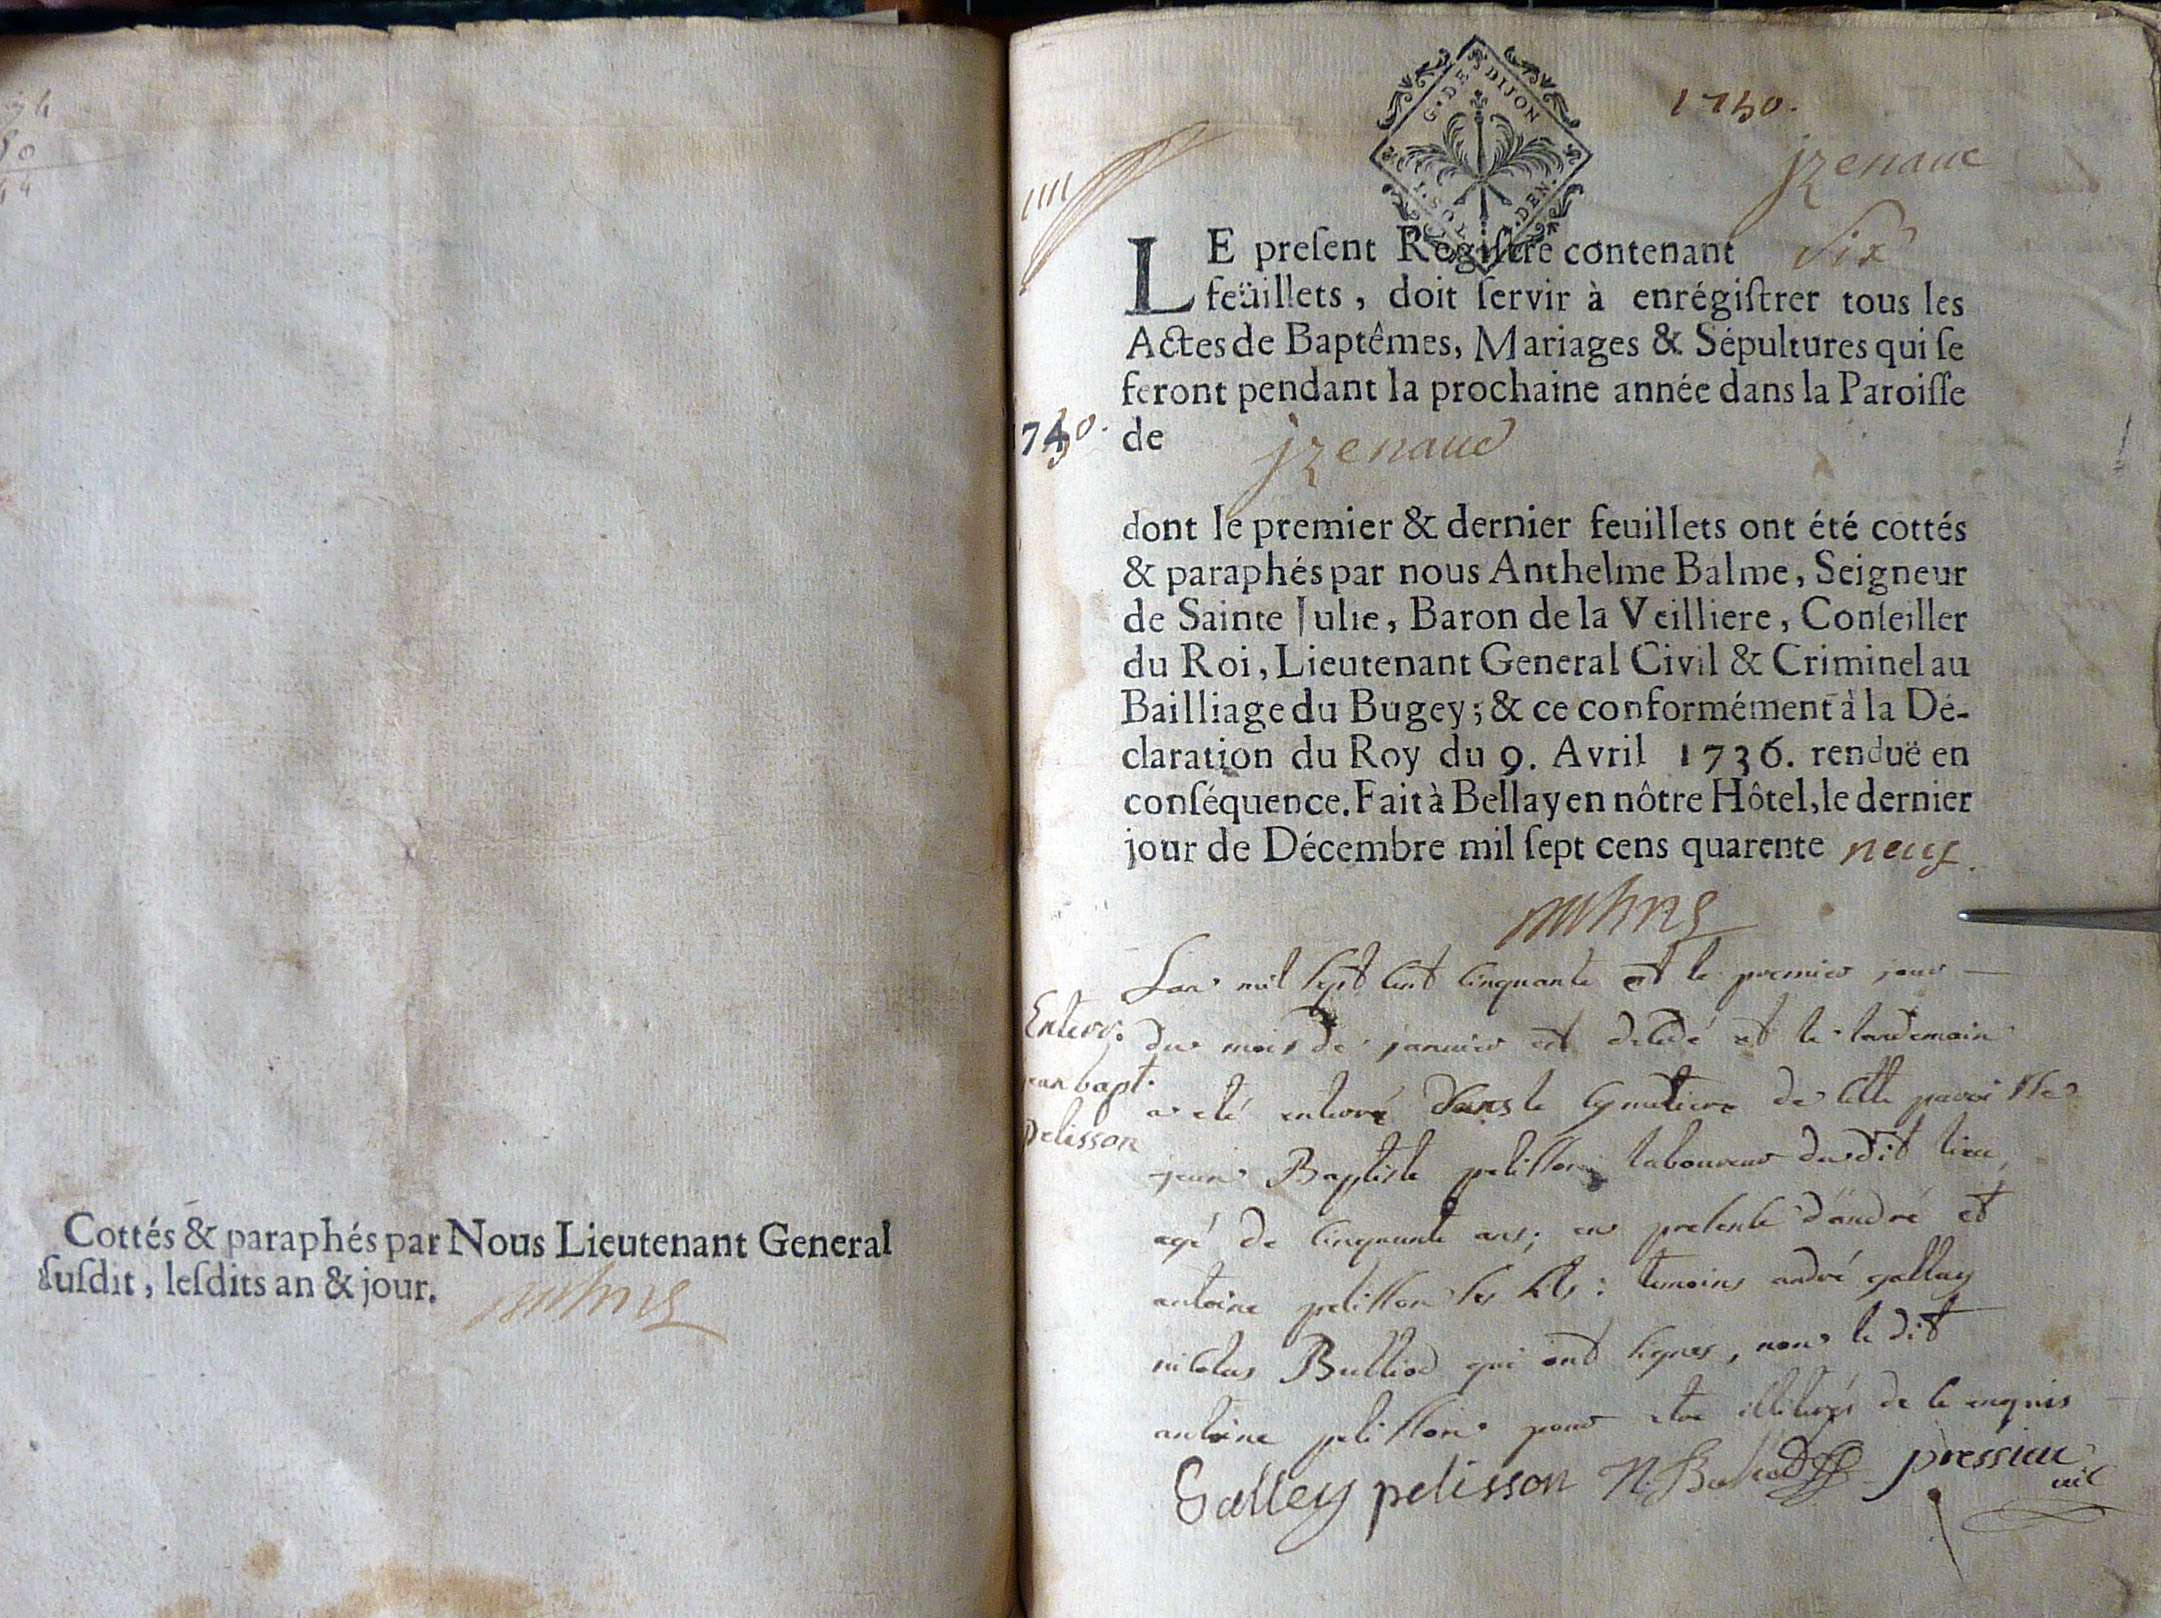 Cottés & paraphés par Nous Lieutenant General
ſuſdit, leſdits an & jour.
G. DE DIJON
1750.
jzenaue
LE preſent Regiſtre contenant six
feüillets, doit ſervir à enrégiſtrer tous les
Actes de Baptêmes, Mariages & Sépultures qui ſe
feront pendant la prochaine année dans la Paroiſſe
de jzenaud
1750.
dont le premier & dernier feuillets ont été cottés
& paraphés par nous Anthelme Balme, Seigneur
de Sainte Julie, Baron de la Veilliere, Conſeiller
du Roi, Lieutenant General Civil & Criminel au
Bailliage du Bugey; & ce conformément à la Dé-
claration du Roy du 9. Avril 1736. renduë en
conſéquence. Fait à Bellay en nôtre Hôtel, le dernier
jour de Décembre mil ſept cens quarente neuf.
Enterr:
jean bapt.
pelisson
Lan mil sept cent cinquante et le premier jour
du mois de janvier est decedé et le landemain
a eté enterré dans le cymetiere de cette paroisse
jean Baptiste pelisson laboureur dudit lieu,
agé de cinquante ans; en presence d'andré et
antoine pelisson ses fils: temoins andré galley
nicolas Bulliod qui ont signés, non le dit
antoine pelisson pour etre illiterés de ce enquis
Galley pelisson N. Bulliod pressieu
curé